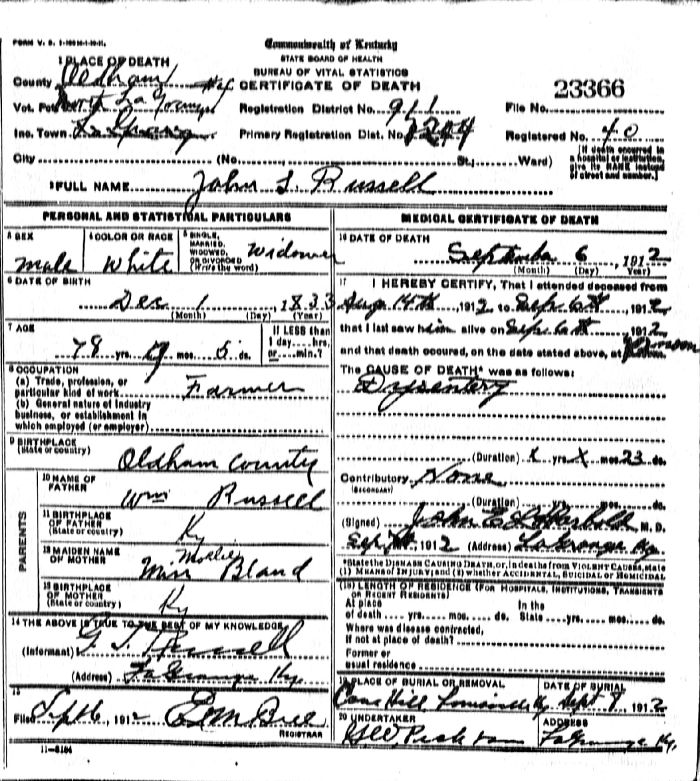 FORM V. S.
Commonwealth of Kentucky
STATE BOARD OF HEALTH
BUREAU OF VITAL STATISTICS
CERTIFICATE OF DEATH
23366
1 PLACE OF DEATH
County Oldham
Vot. Pct. North LaGrange
Registration District No. 911
File No.
Inc. Town
Primary Registration Dist. No.
Registered No. 40
City (No. St.; Ward)
[If death occurred in a hospital or institution, give its NAME instead of street and number.]
2 FULL NAME John L Russell
PERSONAL AND STATISTICAL PARTICULARS
3 SEX male
4 COLOR OR RACE White
5 SINGLE, MARRIED, WIDOWED, OR DIVORCED (Write the word) Widower
6 DATE OF BIRTH
Dec 1 1833
(Month) (Day) (Year)
7 AGE
78 yrs. mos. 5 ds.
If LESS than 1 day....hrs, or....min.?
8 OCCUPATION
(a) Trade, profession, or particular kind of work Farmer
(b) General nature of industry business, or establishment in which employed (or employer)
9 BIRTHPLACE
(State or country)
Oldham County
PARENTS
10 NAME OF FATHER Wm Russell
11 BIRTHPLACE OF FATHER (State or country) Ky
12 MAIDEN NAME OF MOTHER Miss Mollie Bland
13 BIRTHPLACE OF MOTHER (State or country) Ky
14 THE ABOVE IS TRUE TO THE BEST OF MY KNOWLEDGE
(Informant) G. T. Russell
(Address) LaGrange Ky.
15
Filed Sept 6, 1912
REGISTRAR
11-5184
MEDICAL CERTIFICATE OF DEATH
16 DATE OF DEATH
September 6 1912
(Month) (Day) (Year)
17 I HEREBY CERTIFY, That I attended deceased from
Aug 14th, 1912, to Sep 6th, 1912
that I last saw him alive on Sep 6th, 1912
and that death occured, on the date stated above, at
The CAUSE OF DEATH* was as follows:
Dysentery
(Duration) x yrs. x mos. 23 ds.
Contributory None
(SECONDARY)
(Duration) yrs. mos. ds.
(Signed) John E. L. Harbold M. D.
1912 (Address) LaGrange Ky.
*State the DISEASE CAUSING DEATH, or, in deaths from VIOLENT CAUSES, state (1) MEANS OF INJURY; and (2) whether ACCIDENTAL, SUICIDAL or HOMICIDAL
18 LENGTH OF RESIDENCE (FOR HOSPITALS, INSTITUTIONS, TRANSIENTS OR RECENT RESIDENTS)
At place of death .... yrs. .... mos. .... ds. In the State .... yrs. .... mos. .... ds.
Where was disease contracted, If not at place of death?
Former or usual residence
19 PLACE OF BURIAL OR REMOVAL
Cave Hill Louisville Ky
DATE OF BURIAL
Sept 8, 1912
20 UNDERTAKER
ADDRESS
LaGrange Ky.